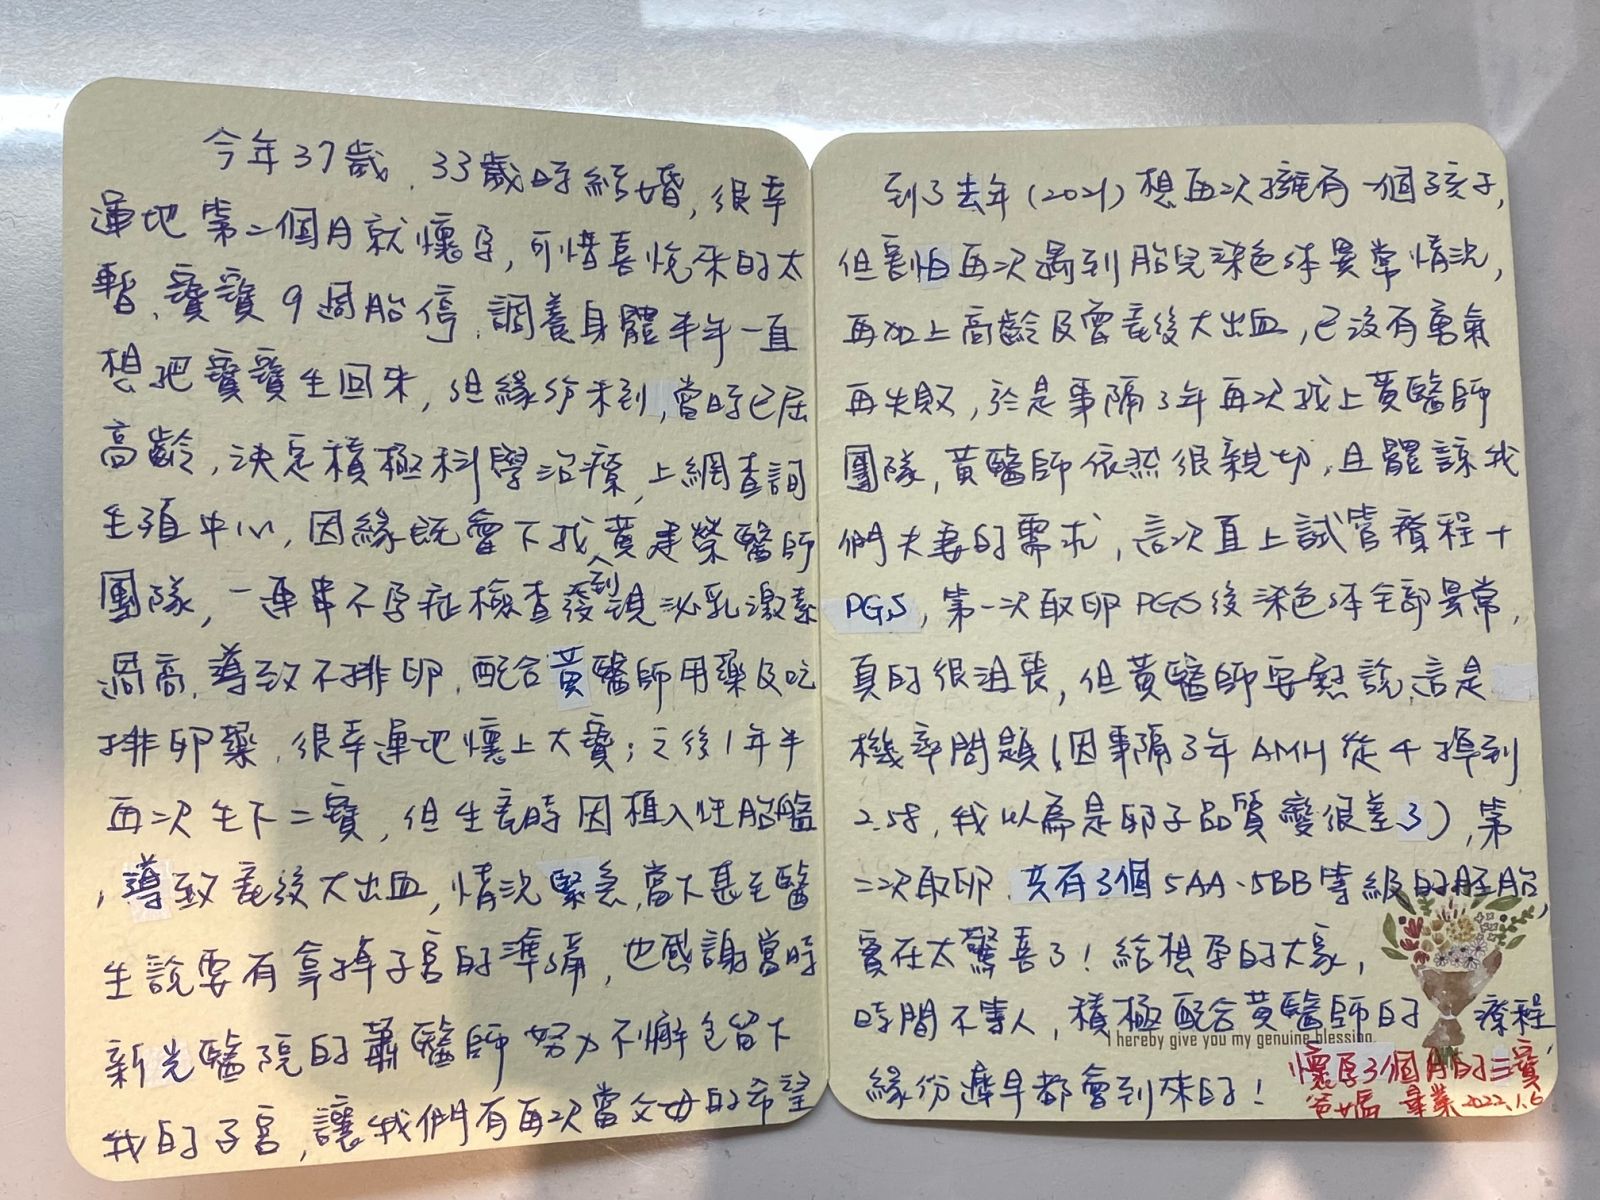 今年37歲,33歲時結婚,很幸
運地第二個月就懷孕,可惜喜悅來的太
暫、寶寶9週胎停,調養身體半年一直
想把寶寶生回來,但緣份未到,當時已屆
高齡,決定積極科學治療,上網查詢
生殖中心,因緣既會下找到黃建榮醫師
團隊,一連串不孕症檢查發現泌乳激素
過高,導致不排卵,配合黃醫師用藥及吃
排卵藥,很幸運地懷上大寶;之後1年半
再次生下二寶,但生產時因植入性胎盤
,導致產後大出血,情況緊急,當下甚至醫
生說要有拿掉子宮的準備,也感謝當時
新光醫院的蕭醫師努力不懈 留下
我的子宮,讓我們有再次當父母的希望
到了去年(2021)想再次擁有一個孩子,
但害怕再次遇到胎兒染色体異常情況,
再加上高齡及曾產後大出血,已沒有勇氣
再失敗,於是事隔3年再次找上黃醫師
團隊,黃醫師依然很親切,且體諒我
們夫妻的需求,這次直上試管療程+
PGS,第一次取卵PGS後染色体全部異常,
真的很沮喪,但黃醫師安慰說這是
機率問題(因事隔3年AMH從4掉到
2.58,我以為是卵子品質變很差了),第
二次取卵,共有3個5AA、5BB等級的胚胎,
實在太驚喜了!給想孕的大家,
時間不等人,積極配合黃醫師的療程,
I hereby give you my genuine blessing.
緣份遲早都會到來的!
懷孕3個月的三寶
爸媽 畢業2022.1.6